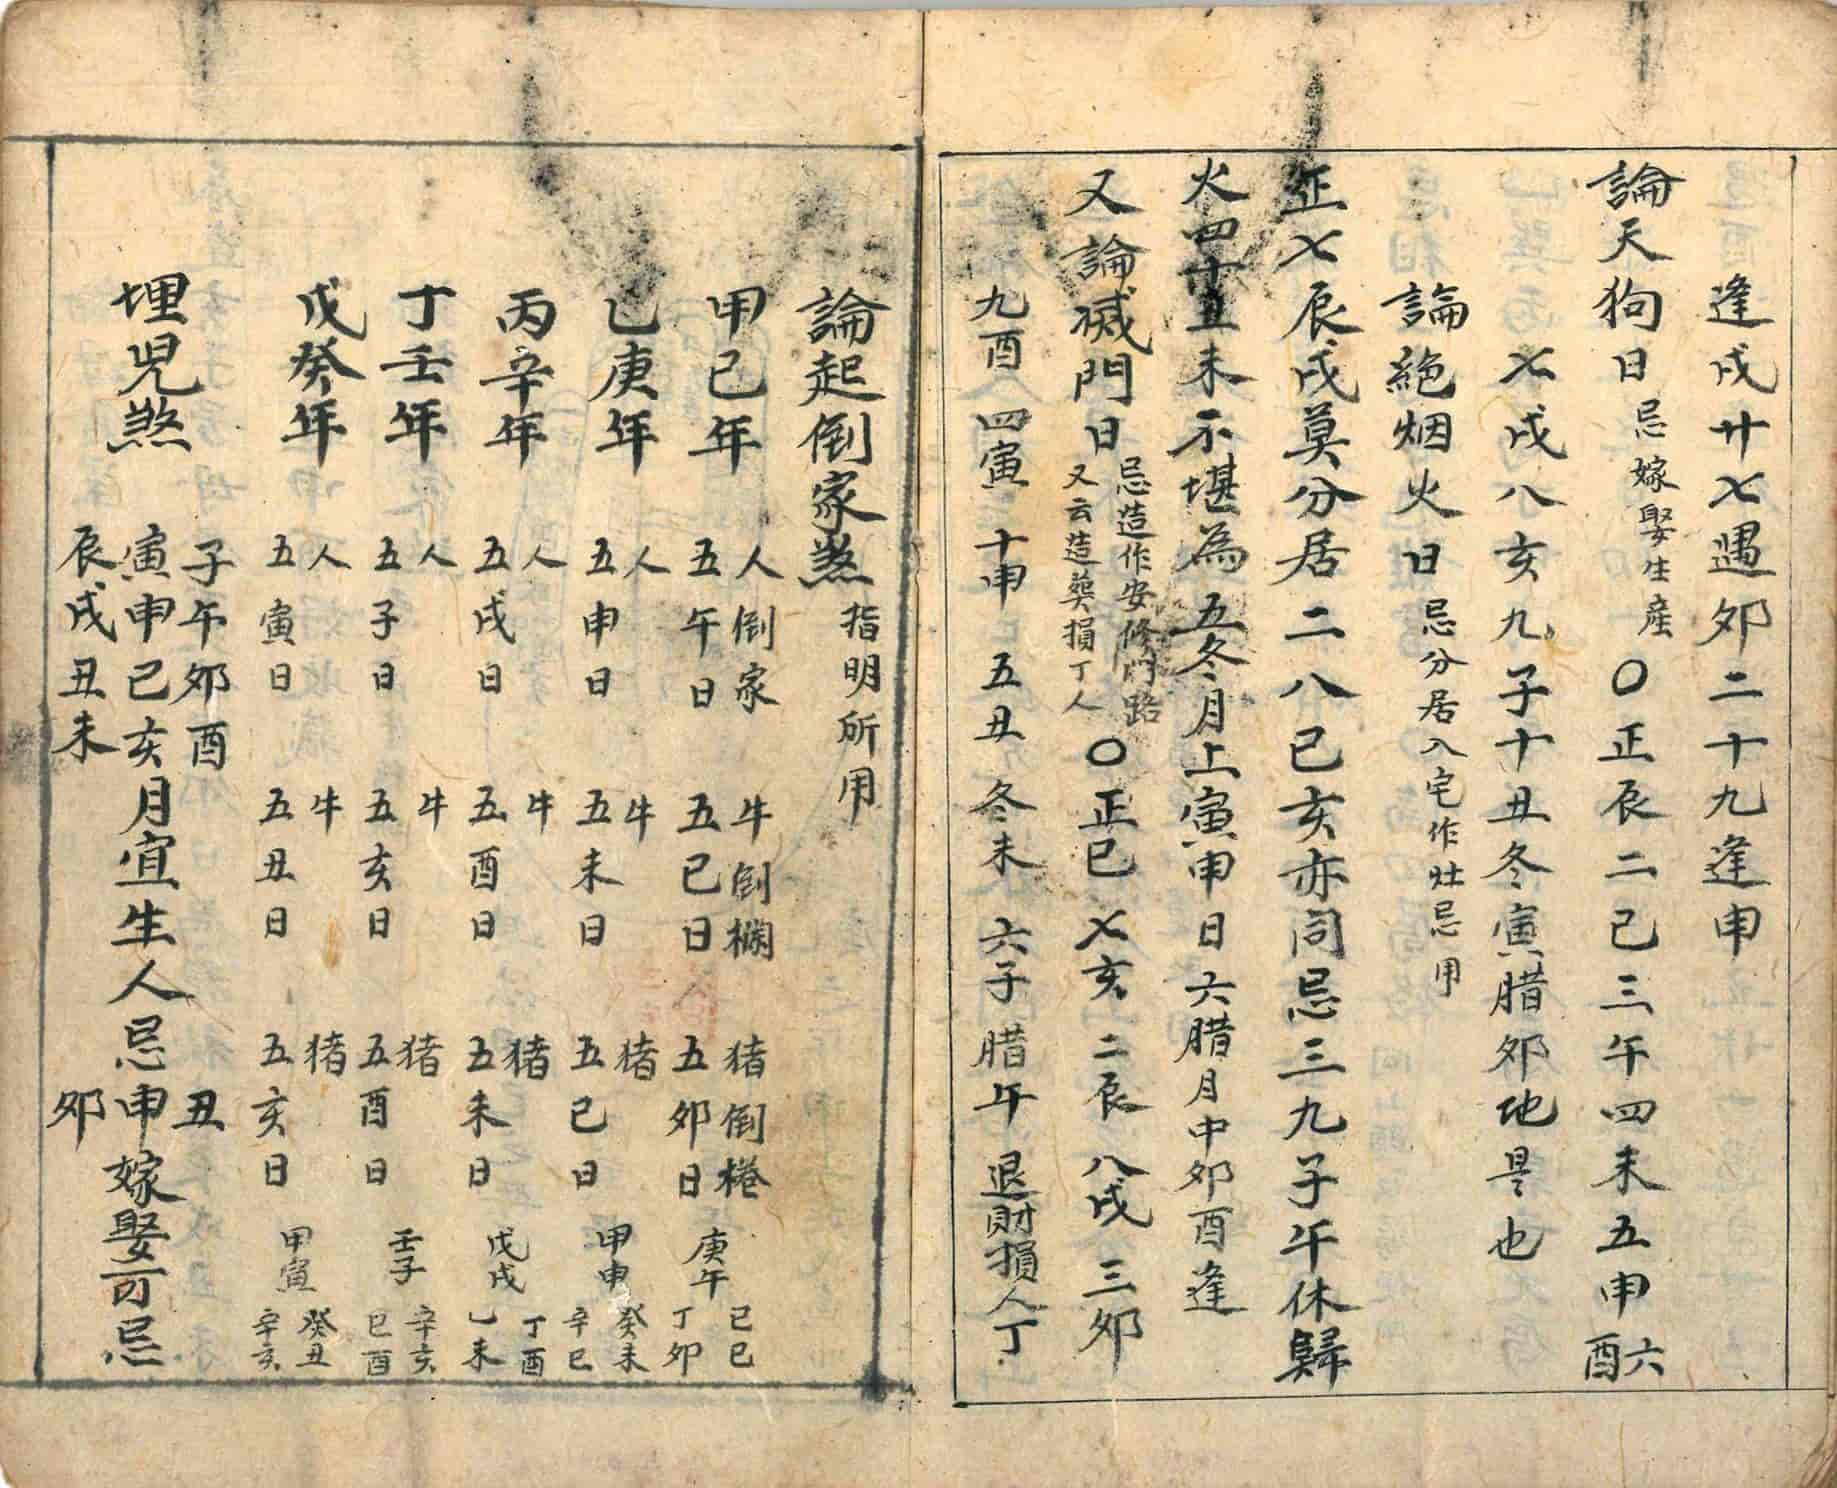 逢戌廿七遇夘二十九逢申
論天狗日 忌嫁娶生産 〇正辰二巳三午四未五申六酉
七戌八亥九子十丑冬寅腊夘地是也
論絶烟火日 忌分居入宅作灶忌用
正七辰戌莫分居二八巳亥亦同忌三九子午休歸
火四十丑未不堪為五冬月上寅申日六腊月中夘酉逢
又論滅門日 忌造作安修門路 又云造葬損丁人 〇正巳七亥二辰八戌三夘
九酉四寅十申五丑冬未六子腊午退財損人丁
論起倒家煞 指明所用
甲己年 人倒家 五午日 牛倒欄 五巳日 猪倒棬 五夘日 庚午 己巳 丁夘
乙庚年 人 五申日 牛 五未日 猪 五巳日 甲申 癸未 辛巳
丙辛年 人 五戌日 牛 五酉日 猪 五未日 戊戌 丁酉 乙未
丁壬年 人 五子日 牛 五亥日 猪 五酉日 壬子 辛亥 己酉
戊癸年 人 五寅日 牛 五丑日 猪 五亥日 甲寅 癸丑 辛亥
埋児煞 子午夘酉 寅申巳亥 辰戌丑未 月宜生人忌 丑 申 夘 嫁娶可忌